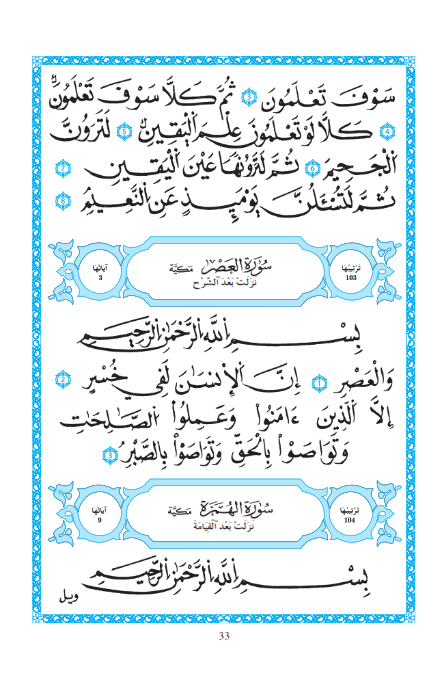 سَوْفَ تَعْلَمُونَ 3 ثُمَّ كَلَّا سَوْفَ تَعْلَمُونَ
4 كَلَّا لَوْ تَعْلَمُونَ عِلْمَ اَلْيَقِينِ 5 لَتَرَوُنَّ
اَلْجَحِيمَ 6 ثُمَّ لَتَرَوُنَّهَا عَيْنَ اَلْيَقِينِ 7
ثُمَّ لَتُسْـَٔلُنَّ يَوْمَئِذٍ عَنِ اِلنَّعِيمِ 8
تَرْتِيبُهَا 103
سُورَةُ الْعَصْرِ مَكِّيَّة
نَزَلَتْ بَعْدَ الشَّرْحِ
آيَاتُهَا 3
بِسْمِ اِللَّهِ اِلرَّحْمَٰنِ اِلرَّحِيمِ
وَالْعَصْرِ 1 إِنَّ اَلْإِنسَٰنَ لَفِي خُسْرٍ 2
إِلَّا اَلَّذِينَ ءَامَنُوا وَعَمِلُوا اُلصَّٰلِحَٰتِ
وَتَوَاصَوْا بِالْحَقِّ وَتَوَاصَوْا بِالصَّبْرِ 3
تَرْتِيبُهَا 104
سُورَةُ الْهُمَزَةِ مَكِّيَّة
نَزَلَتْ بَعْدَ الْقِيَامَة
آيَاتُهَا 9
بِسْمِ اِللَّهِ اِلرَّحْمَٰنِ اِلرَّحِيمِ
ويل
33